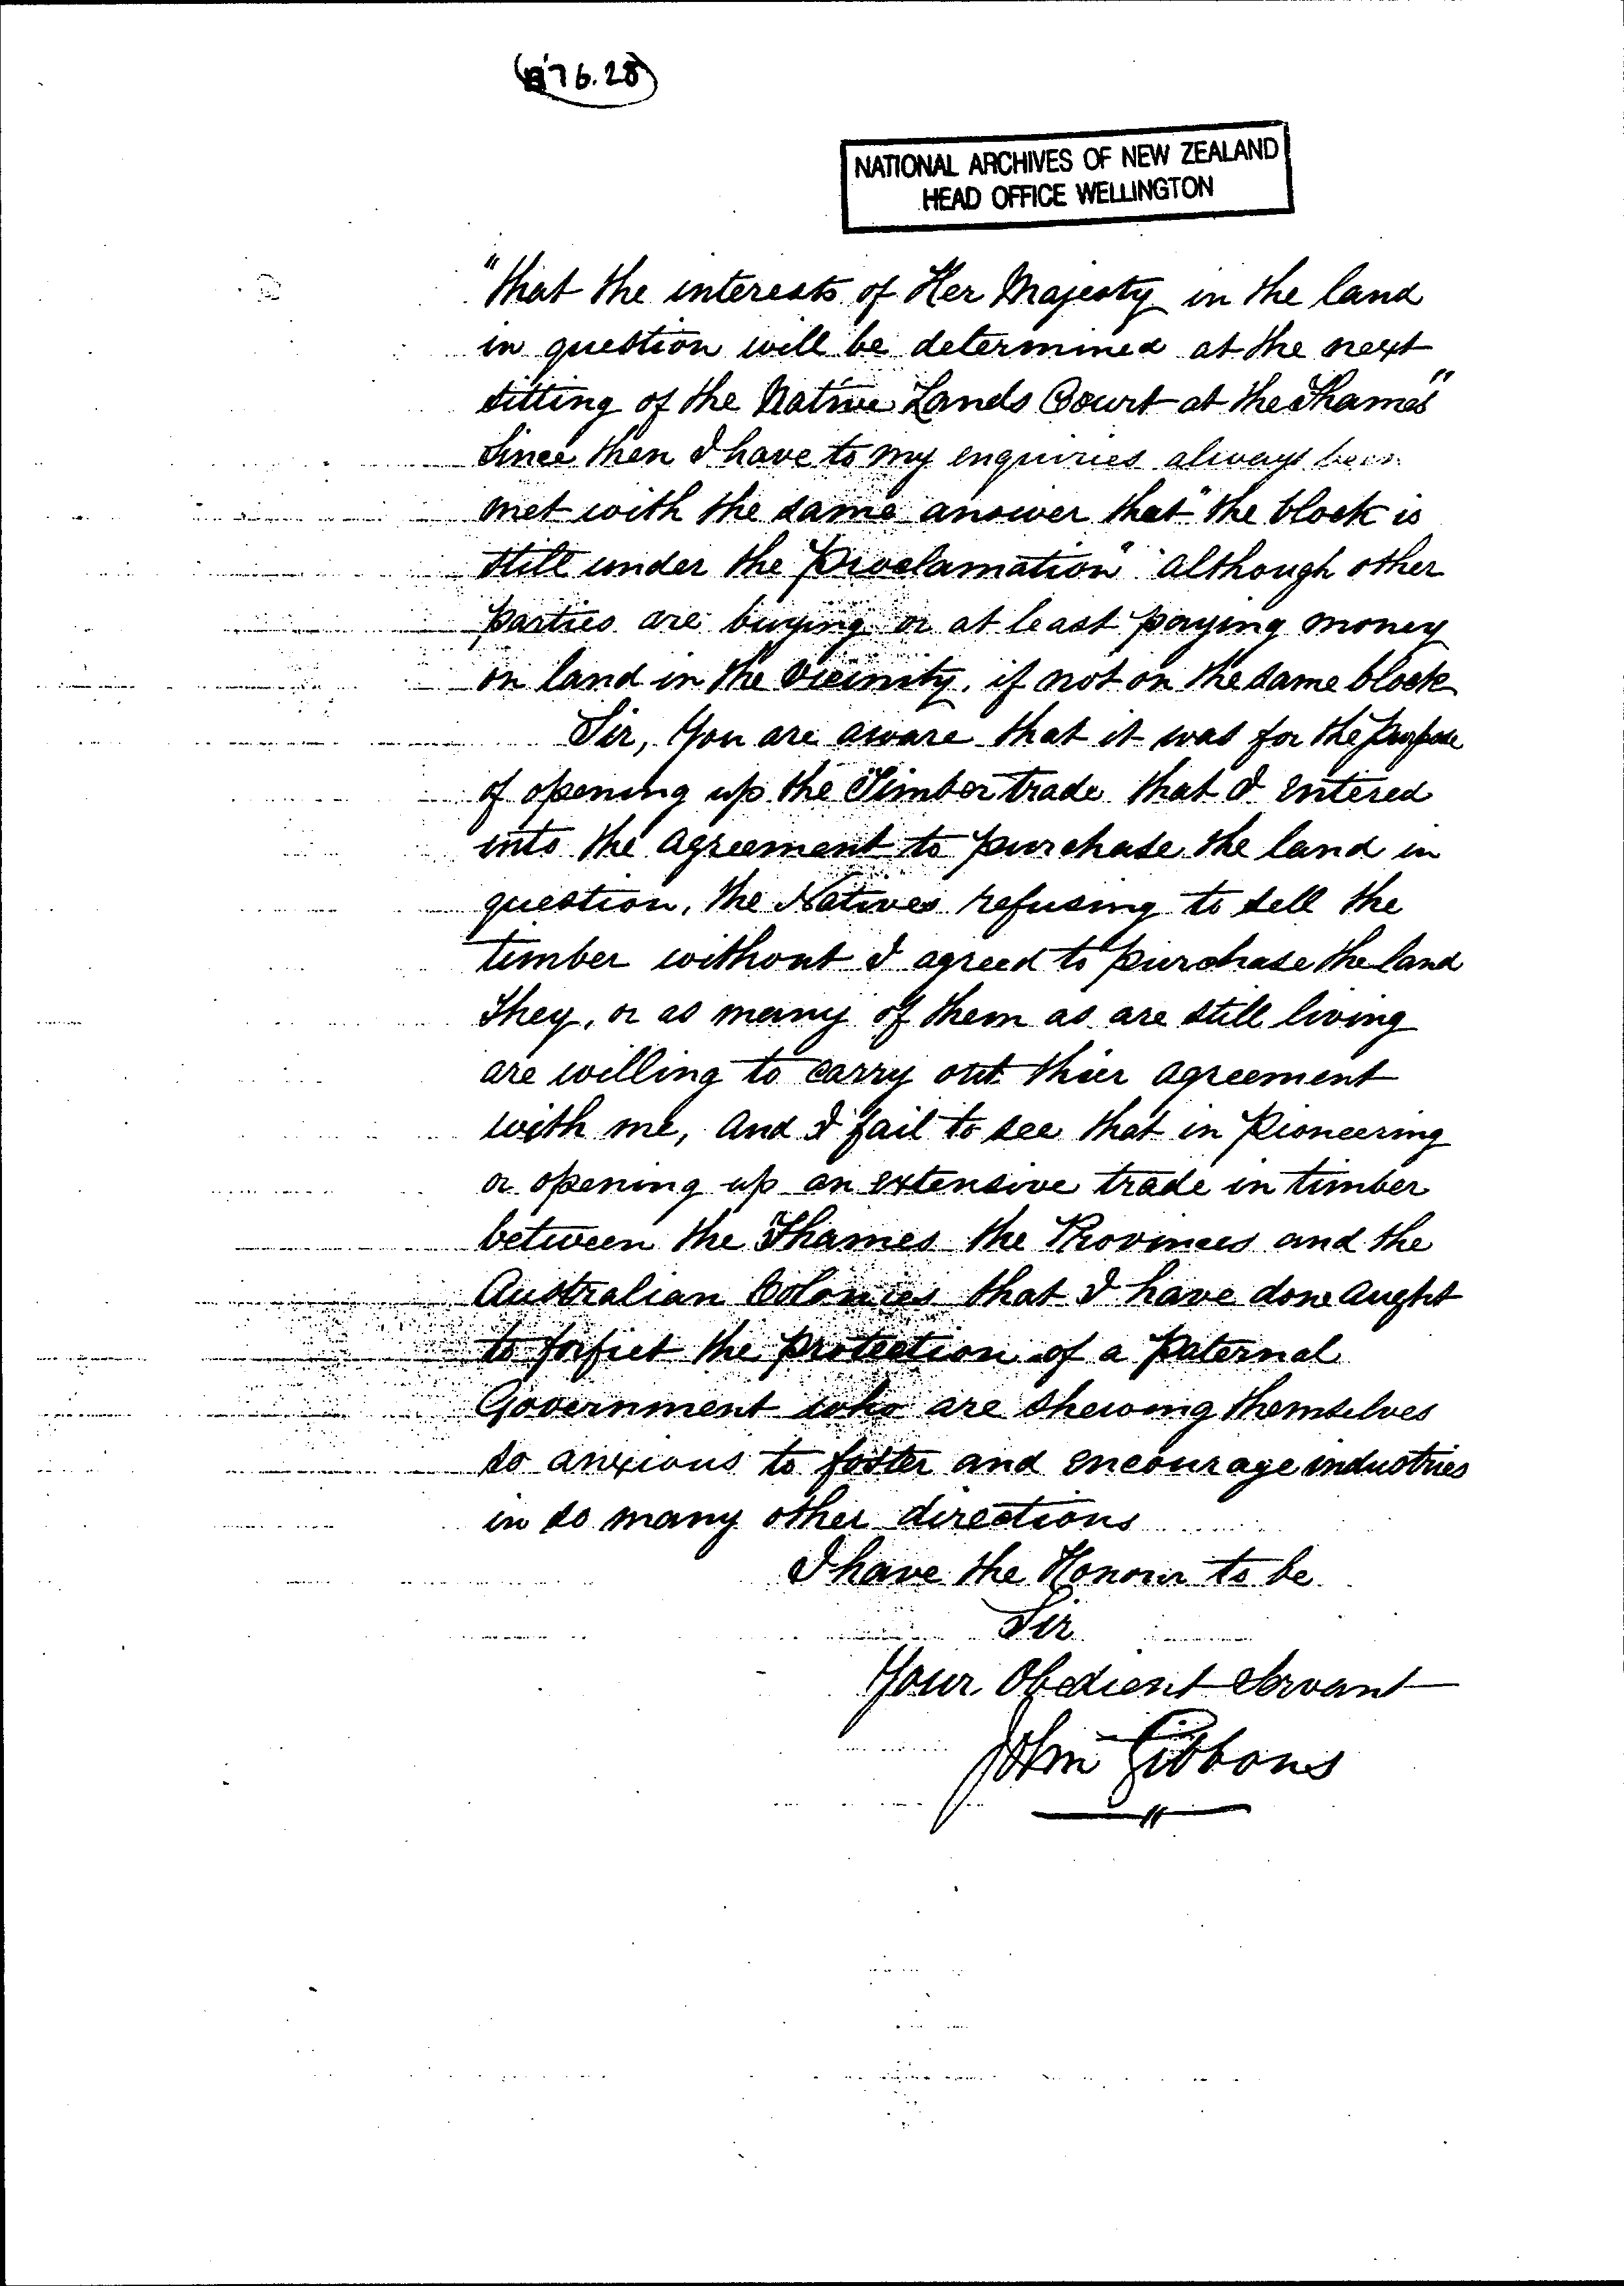 76.28
NATIONAL ARCHIVES OF NEW ZEALAND
HEAD OFFICE WELLINGTON
"that the interests of Her Majesty in the land
in question will be determined at the next
sitting of the Native Lands Court at the Thames"
Since then I have to my enquiries always been
met with the same answer that "the block is
still under the proclamation" although other
parties are buying or at least paying money
on land in the vicinity, if not on the same block
Sir, You are aware that it was for the purpose
of opening up the Timber trade that I entered
into the agreement to purchase the land in
question, the Natives refusing to sell the
timber without I agreed to purchase the land
They, or as many of them as are still living
are willing to carry out thier agreement
with me, and I fail to see that in Pioneering
or opening up an extensive trade in timber
between the Thames the Provinces and the
Australian Colonies that I have done aught
to forfiet the protection of a paternal
Government who are shewing themselves
so anxious to foster and encourage industries
in so many other directions
I have the Honour to be
Sir
Your Obedient Servant
John Gibbons